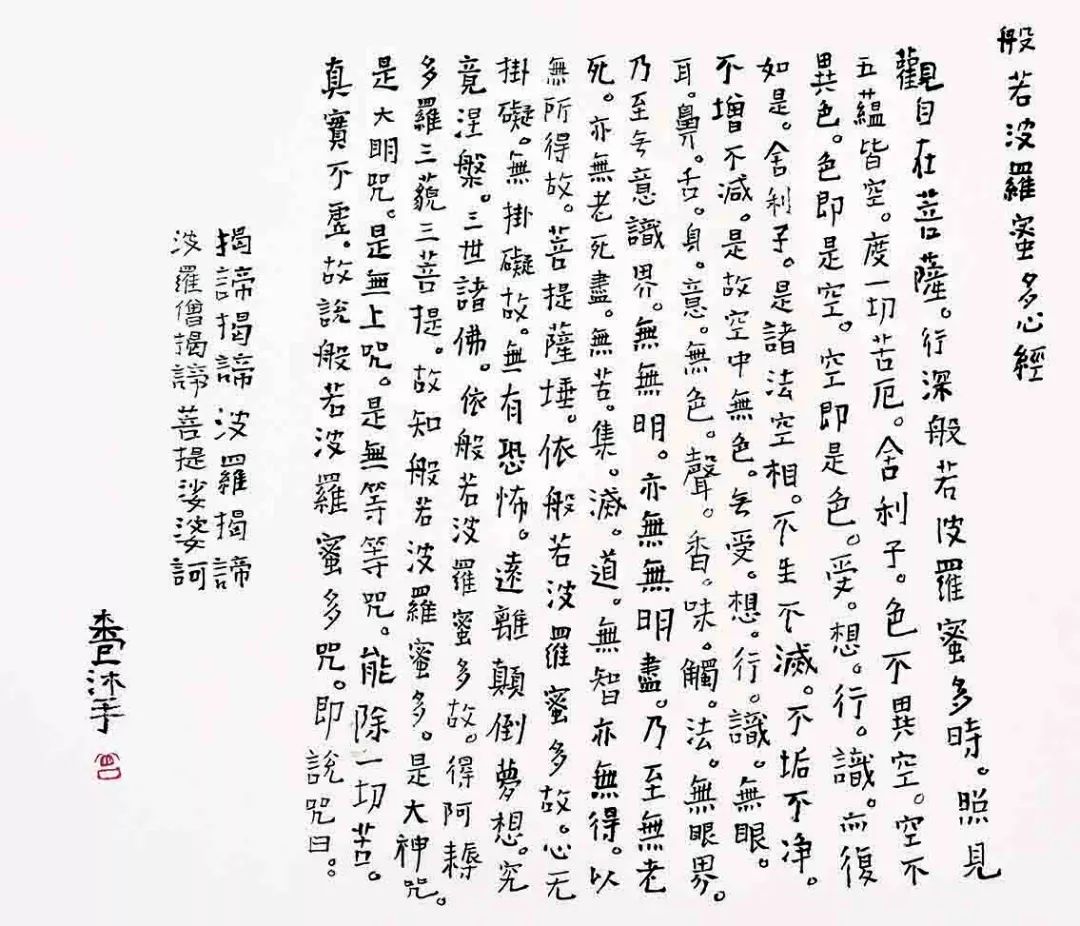 般若波羅蜜多心經
觀自在菩薩。行深般若波羅蜜多時。照見
五蘊皆空。度一切苦厄。舍利子。色不異空。空不
異色。色即是空。空即是色。受。想。行。識。亦復
如是。舍利子。是諸法空相。不生不滅。不垢不净。
不增不減。是故空中無色。无受。想。行。識。無眼。
耳。鼻。舌。身。意。無色。聲。香。味。觸。法。無眼界。
乃至无意識界。無無明。亦無無明盡。乃至無老
死。亦無老死盡。無苦。集。滅。道。無智亦無得。以
無所得故。菩提薩埵。依般若波羅蜜多故。心无
掛礙。無掛礙故。無有恐怖。遠離顛倒夢想。究
竟涅槃。三世諸佛。依般若波羅蜜多故。得阿耨
多羅三藐三菩提。故知般若波羅蜜多。是大神咒。
是大明咒。是無上咒。是無等等咒。能除一切苦。
真實不虛。故說般若波羅蜜多咒。即說咒曰。
揭諦揭諦波羅揭諦
波羅僧揭諦菩提娑婆訶
沐手